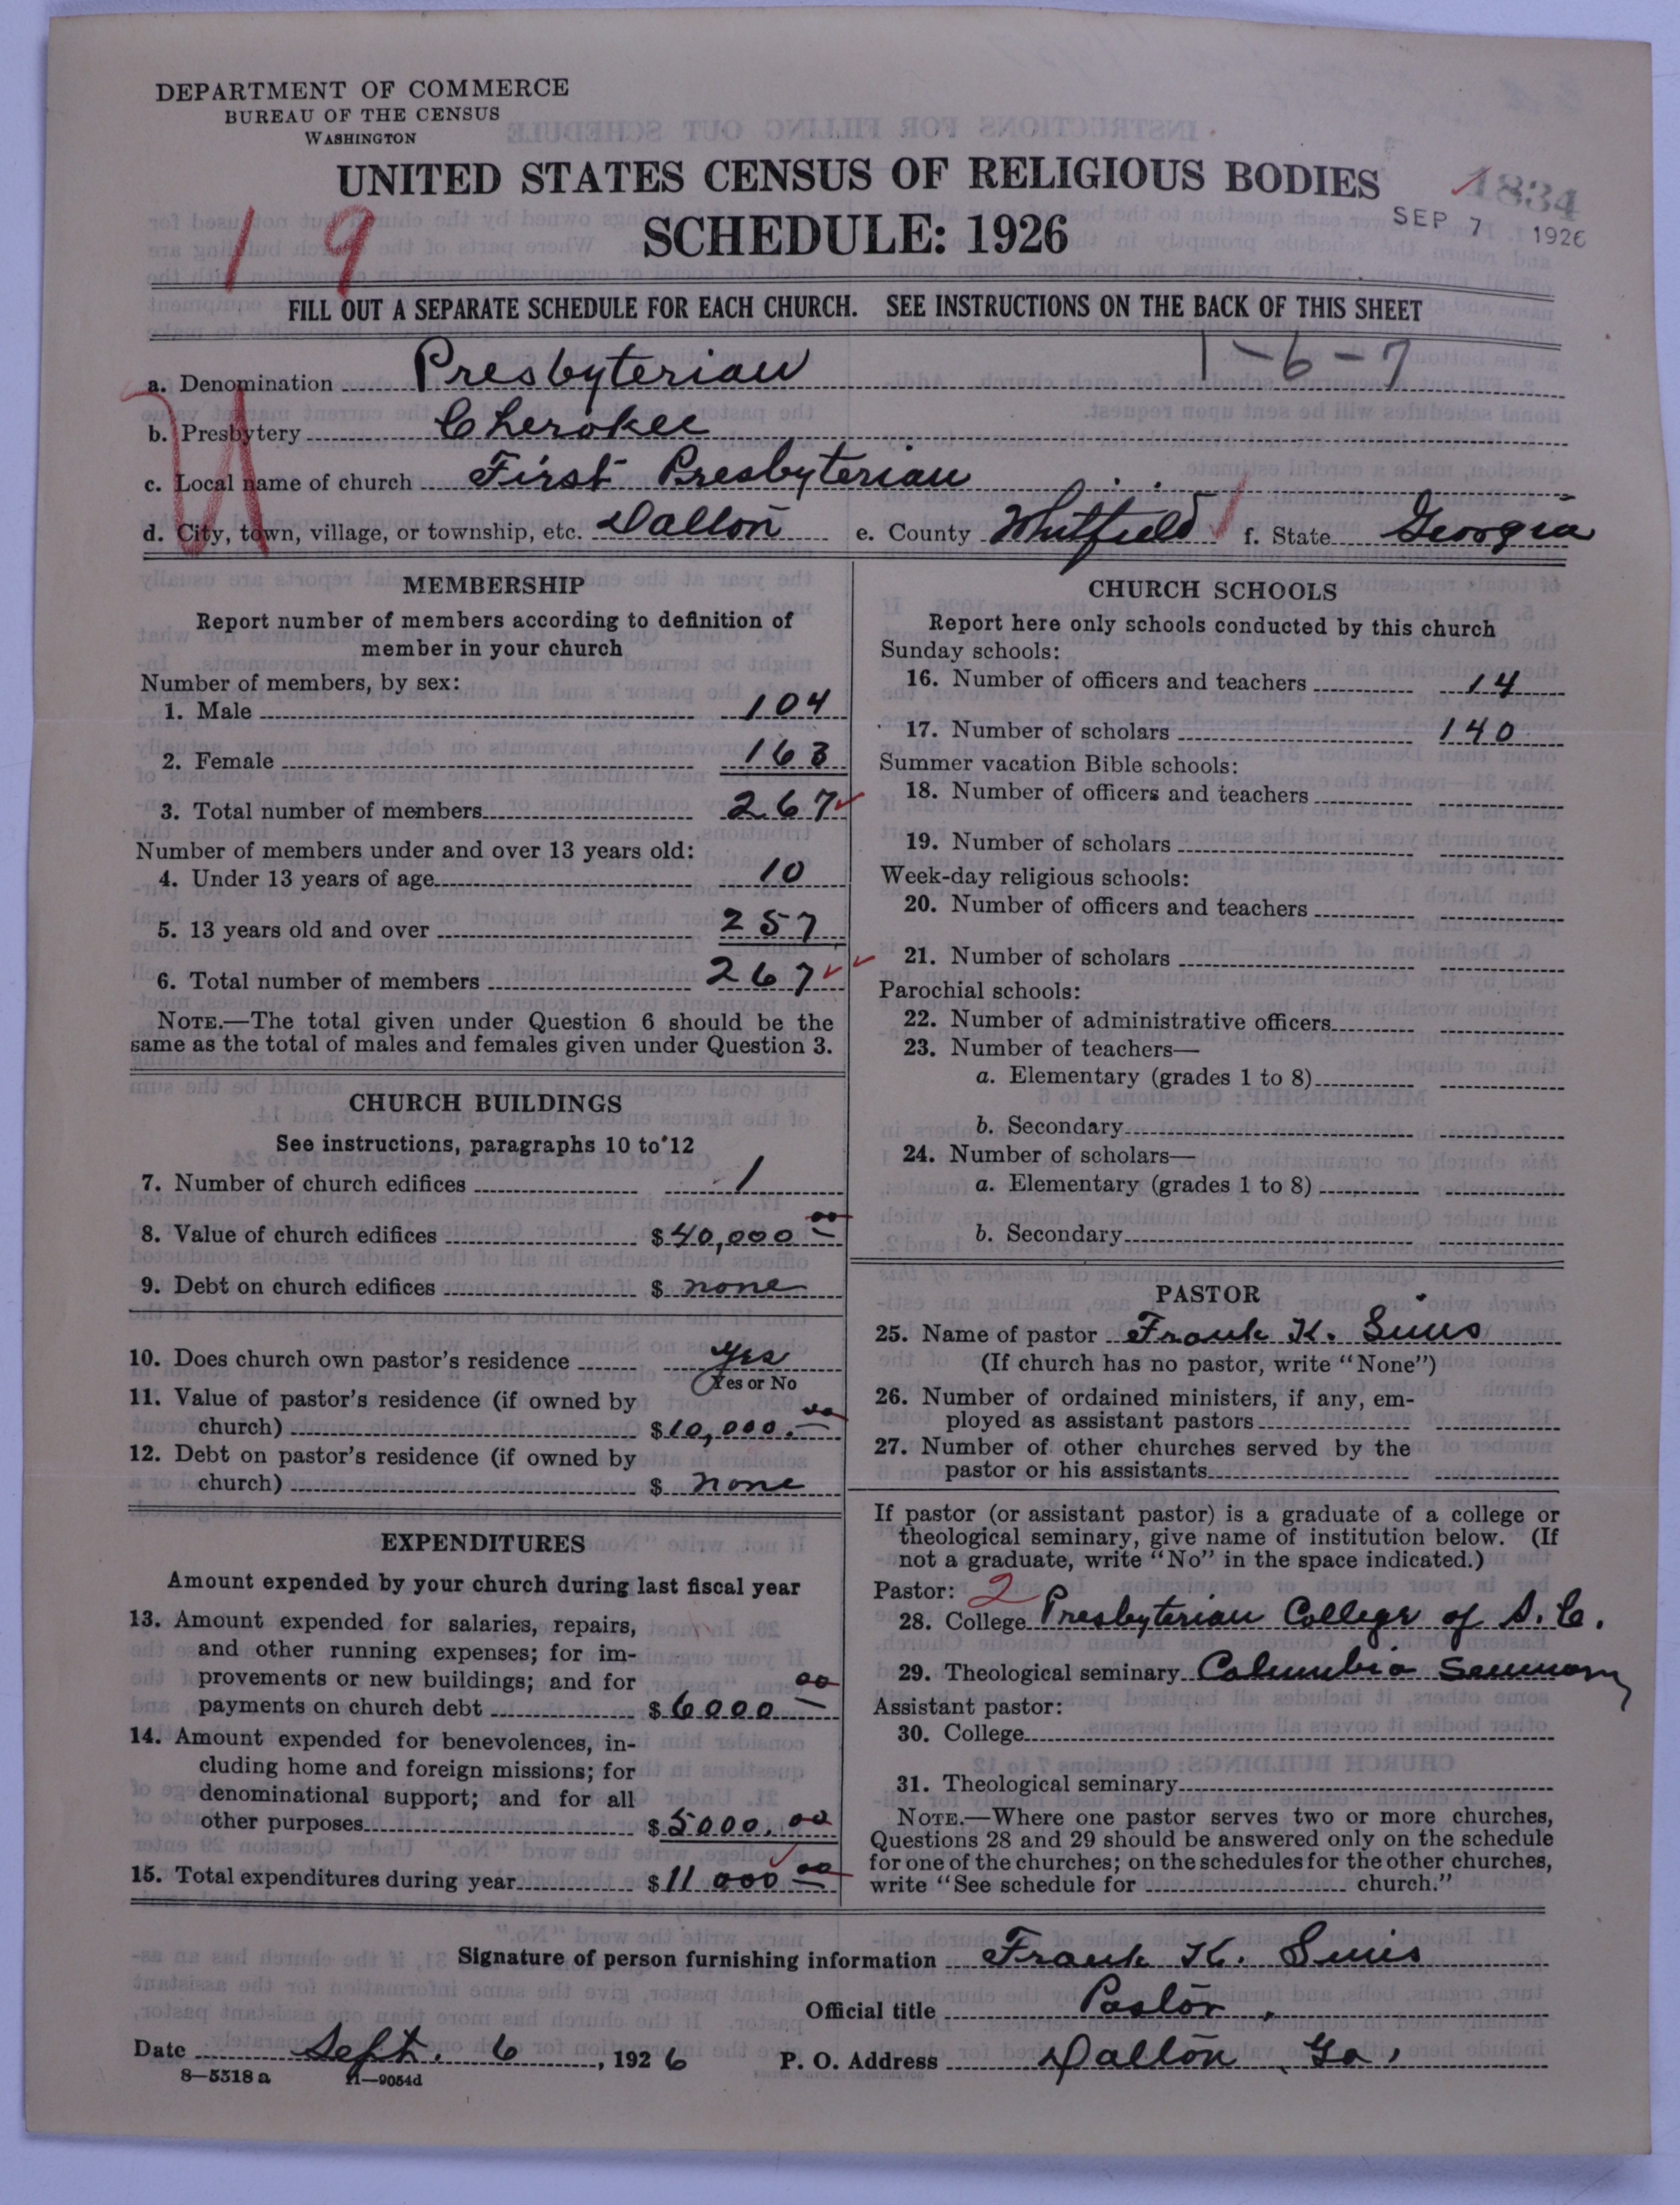 DEPARTMENT OF COMMERCE
BUREAU OF THE CENSUS
WASHINGTON
UNITED STATES CENSUS OF RELIGIOUS BODIES
1834
SCHEDULE: 1926
SEP 7 1926
19
FILL OUT A SEPARATE SCHEDULE FOR EACH CHURCH. SEE INSTRUCTIONS ON THE BACK OF THIS SHEET
1-6-7
a. Denomination Presbyterian
b. Presbytery Cherokee
c. Local name of church First Presbyterian
d. City, town, village, or township, etc. Dalton e. County Whitfield f. State Georgia
MEMBERSHIP
Report number of members according to definition of
member in your church
Number of members, by sex:
1. Male 104
2. Female 163
3. Total number of members 267
Number of members under and over 13 years old:
4. Under 13 years of age 10
5. 13 years old and over 257
6. Total number of members 267
NOTE.—The total given under Question 6 should be the
same as the total of males and females given under Question 3.
CHURCH BUILDINGS
See instructions, paragraphs 10 to 12
7. Number of church edifices 1
8. Value of church edifices $40,000 00
9. Debt on church edifices $ none
10. Does church own pastor's residence yes
Yes or No
11. Value of pastor's residence (if owned by
church) $10,000. 00
12. Debt on pastor's residence (if owned by
church) $ none
EXPENDITURES
Amount expended by your church during last fiscal year
13. Amount expended for salaries, repairs,
and other running expenses; for im-
provements or new buildings; and for
payments on church debt $6000 00
14. Amount expended for benevolences, in-
cluding home and foreign missions; for
denominational support; and for all
other purposes $5000. 00
15. Total expenditures during year $11 000 00
CHURCH SCHOOLS
Report here only schools conducted by this church
Sunday schools:
16. Number of officers and teachers 14
17. Number of scholars 140
Summer vacation Bible schools:
18. Number of officers and teachers
19. Number of scholars
Week-day religious schools:
20. Number of officers and teachers
21. Number of scholars
Parochial schools:
22. Number of administrative officers
23. Number of teachers—
a. Elementary (grades 1 to 8)
b. Secondary
24. Number of scholars—
a. Elementary (grades 1 to 8)
b. Secondary
PASTOR
25. Name of pastor Frank K. Sims
(If church has no pastor, write "None")
26. Number of ordained ministers, if any, em-
ployed as assistant pastors
27. Number of other churches served by the
pastor or his assistants
If pastor (or assistant pastor) is a graduate of a college or
theological seminary, give name of institution below. (If
not a graduate, write "No" in the space indicated.)
Pastor: 2
28. College Presbyterian College of S. C.
29. Theological seminary Columbia Seminary
Assistant pastor:
30. College
31. Theological seminary
NOTE.—Where one pastor serves two or more churches,
Questions 28 and 29 should be answered only on the schedule
for one of the churches; on the schedules for the other churches,
write "See schedule for church."
Signature of person furnishing information Frank K. Sims
Official title Pastor.
Date Sept. 6, 1926 P. O. Address Dalton, Ga,
8—5318a 11—9054d